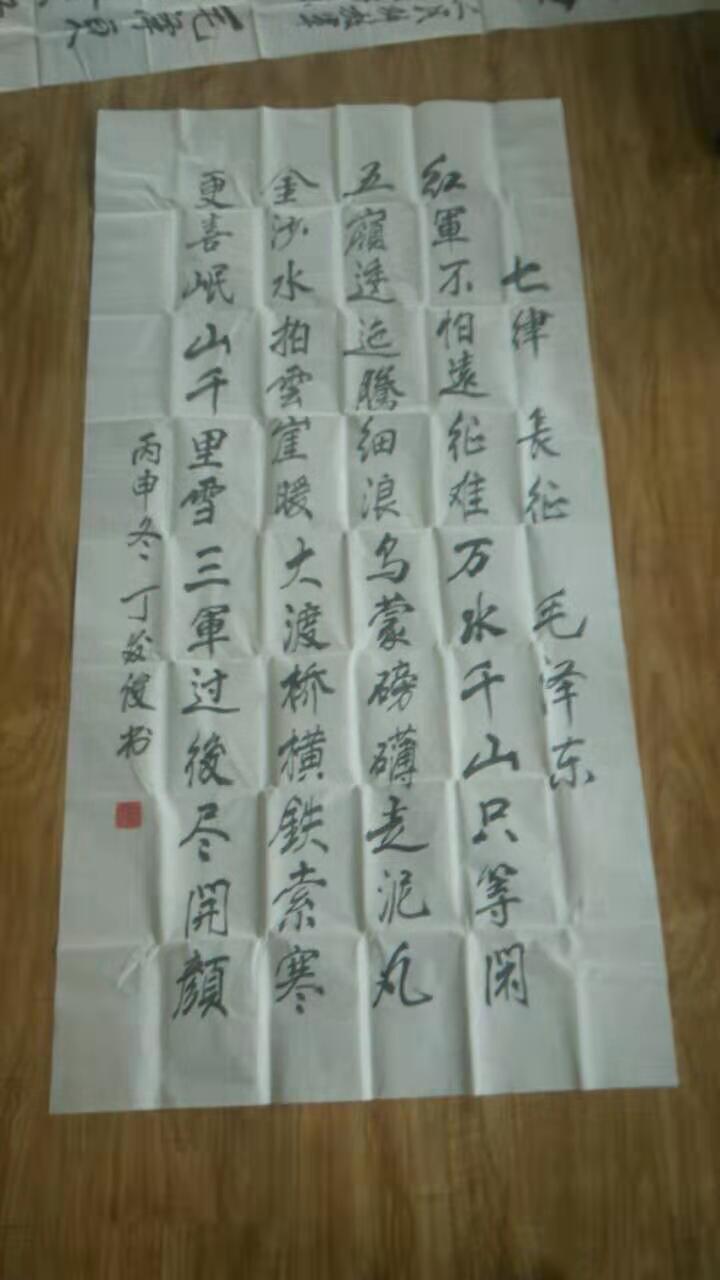 七律 長征 毛泽东
红軍不怕遠征难万水千山只等閑
五嶺逶迤騰细浪乌蒙磅礴走泥丸
金沙水拍雲崖暖大渡桥横鉄索寒
更喜岷山千里雪三軍过後尽開顔
丙申冬 丁